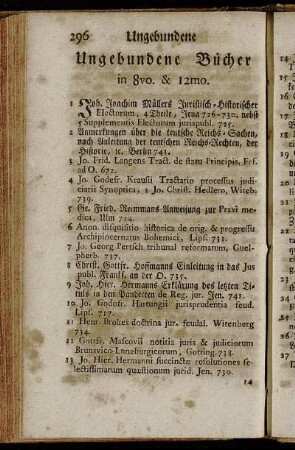 296 Ungebundene
Ungebundene Bücher
in 8vo. & 12mo.
1 Joh. Joachim Müllers Juristisch-Historischer
Electorum, 4 Theile, Jena 726-730. nebst
5 Supplementis Electorum jurispubl. 725.
2 Anmerkungen über die teutsche Reichs-Sachen,
nach Anleitung der teutschen Reichs-Rechten, der
Historie, ic. Berlin 741.
3 Jo. Frid. Langens Tract. de statu Principis, Frf.
ad O. 672.
4 Jo. Godefr. Krausii Tractatio processus judi-
ciarii Synoptica, 2 Jo. Christ. Hedlero, Witeb.
739.
5 Ge. Fried. Remmans Anweisung zur Praxi me-
dica, Ulm 724.
6 Anon. disquisitio historica de orig. & progressu
Archipincernatus Bohemici, Lips. 731.
7 Jo. Georg Pertsch tribunal reformatum, Guel-
pherb. 737.
8 Christ. Gottfr. Hoffmanns Einleitung in das Jus
publ. Frankf. an der O. 735.
9 Joh. Hier. Hermanns Erklärung des letzten Ti-
tuls in den Pandecten de Reg. jur. Jen. 741.
10 Jo. Godofr. Hartungii jurisprudentia feud.
Lips. 717.
11 Henr. Brokes doctrina jur. feudal. Witenberg
734.
12 Gottfr. Mascovii notitia juris & judiciorum
Brunsvico-Luneburgicorum, Gotting. 738.
13 Jo. Hier. Hermanni succinctæ resolutiones se-
lectissimarum quæstionum jurid. Jen. 730.
14